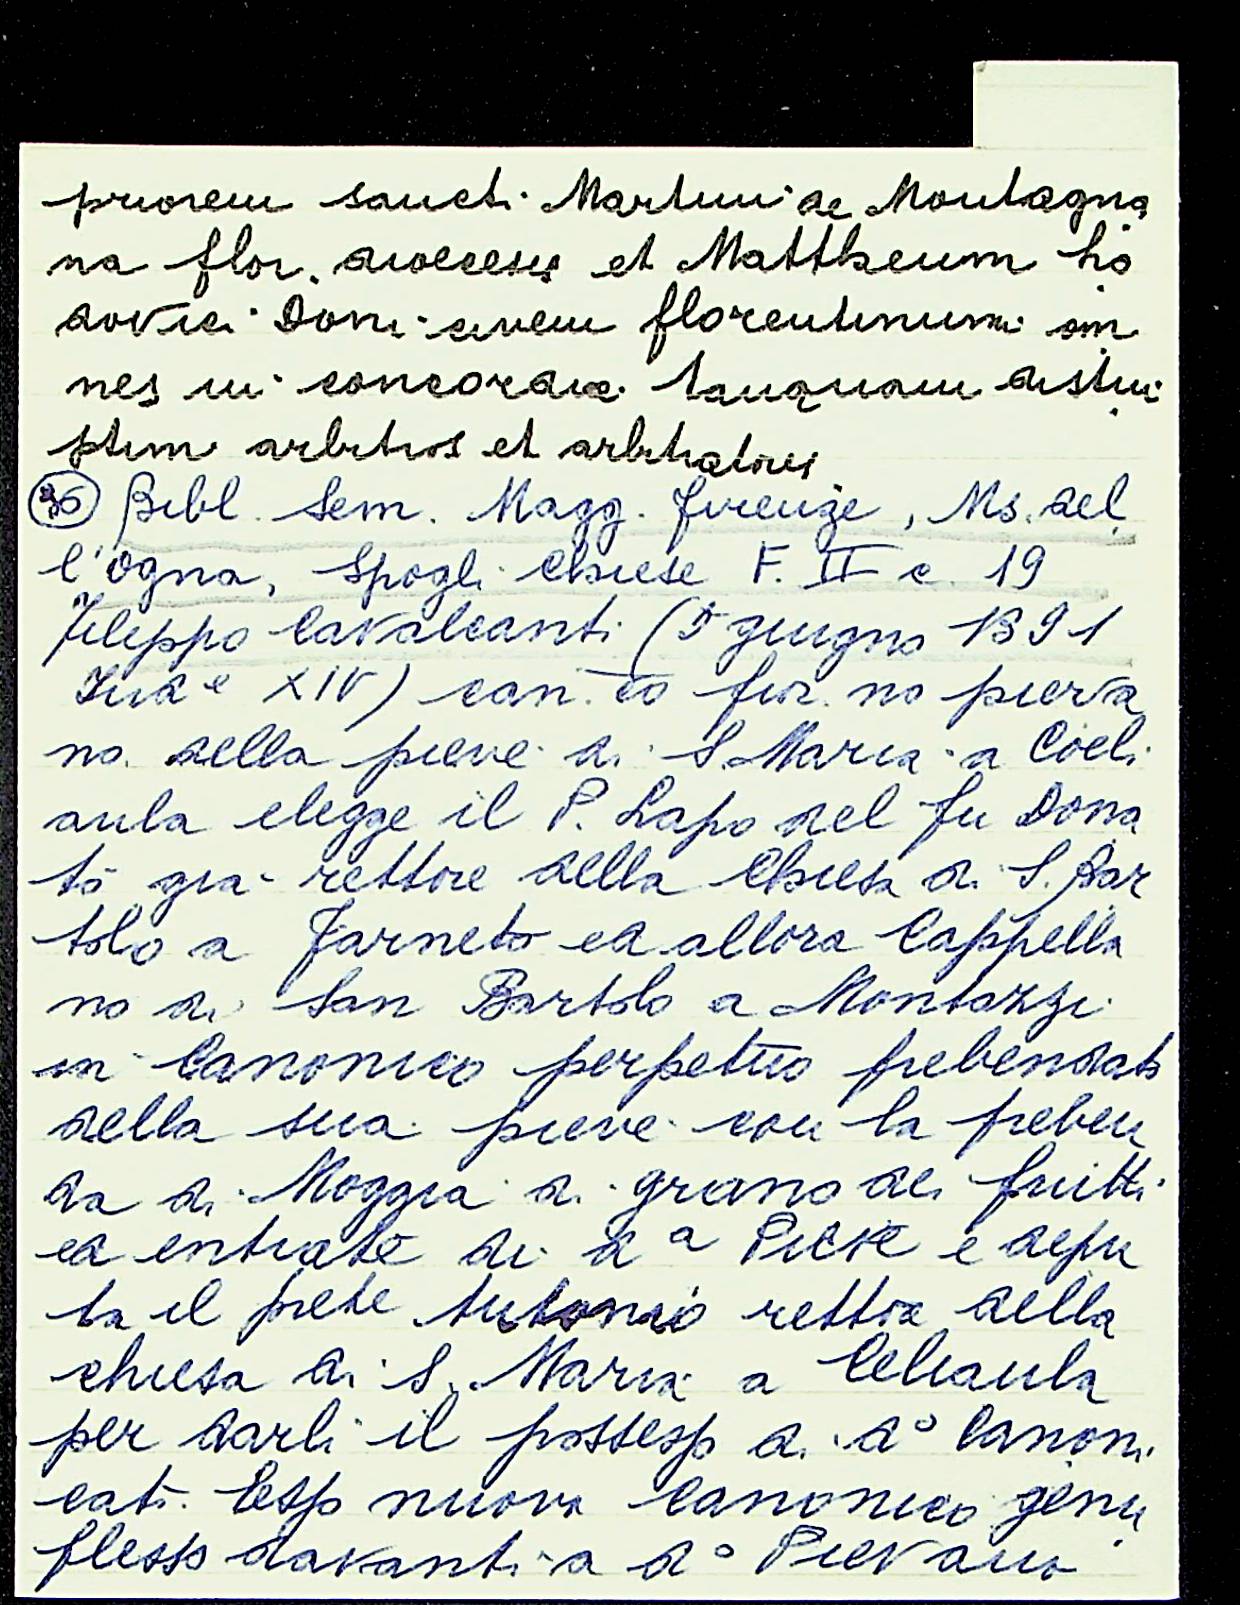 priorem sancti Martini de Montagna
na flor. diocesis et Mattheum
Doni civem florentinum om
nes in concordia tanquam
arbitros et arbitratores
36 Bibl. Sem. Magg. Firenze, Ms. del
l'ogna, Spogli Chiese F. II c. 19
Filippo Cavalcanti (5 giugno 1391
Ind e XIV) can.co fior.no pieva
no della pieve di S. Maria a Coeli
aula elegge il P. Lapo del fu Dona
to già rettore della Chiesa di S. Bar
tolo a Farneto ed allora Cappella
no di San Bartolo a Montozzi
in Canonico perpetuo prebendato
della sua pieve con la preben
da di Moggia di grano dei frutti
ed entrate di da Pieve e depu
ta il prete Antonio rettore della
chiesa di S. Maria a Celiaula
per darli il possesso di do Canoni
cato. Esso nuovo canonico genu
flesso davanti a do Pievano